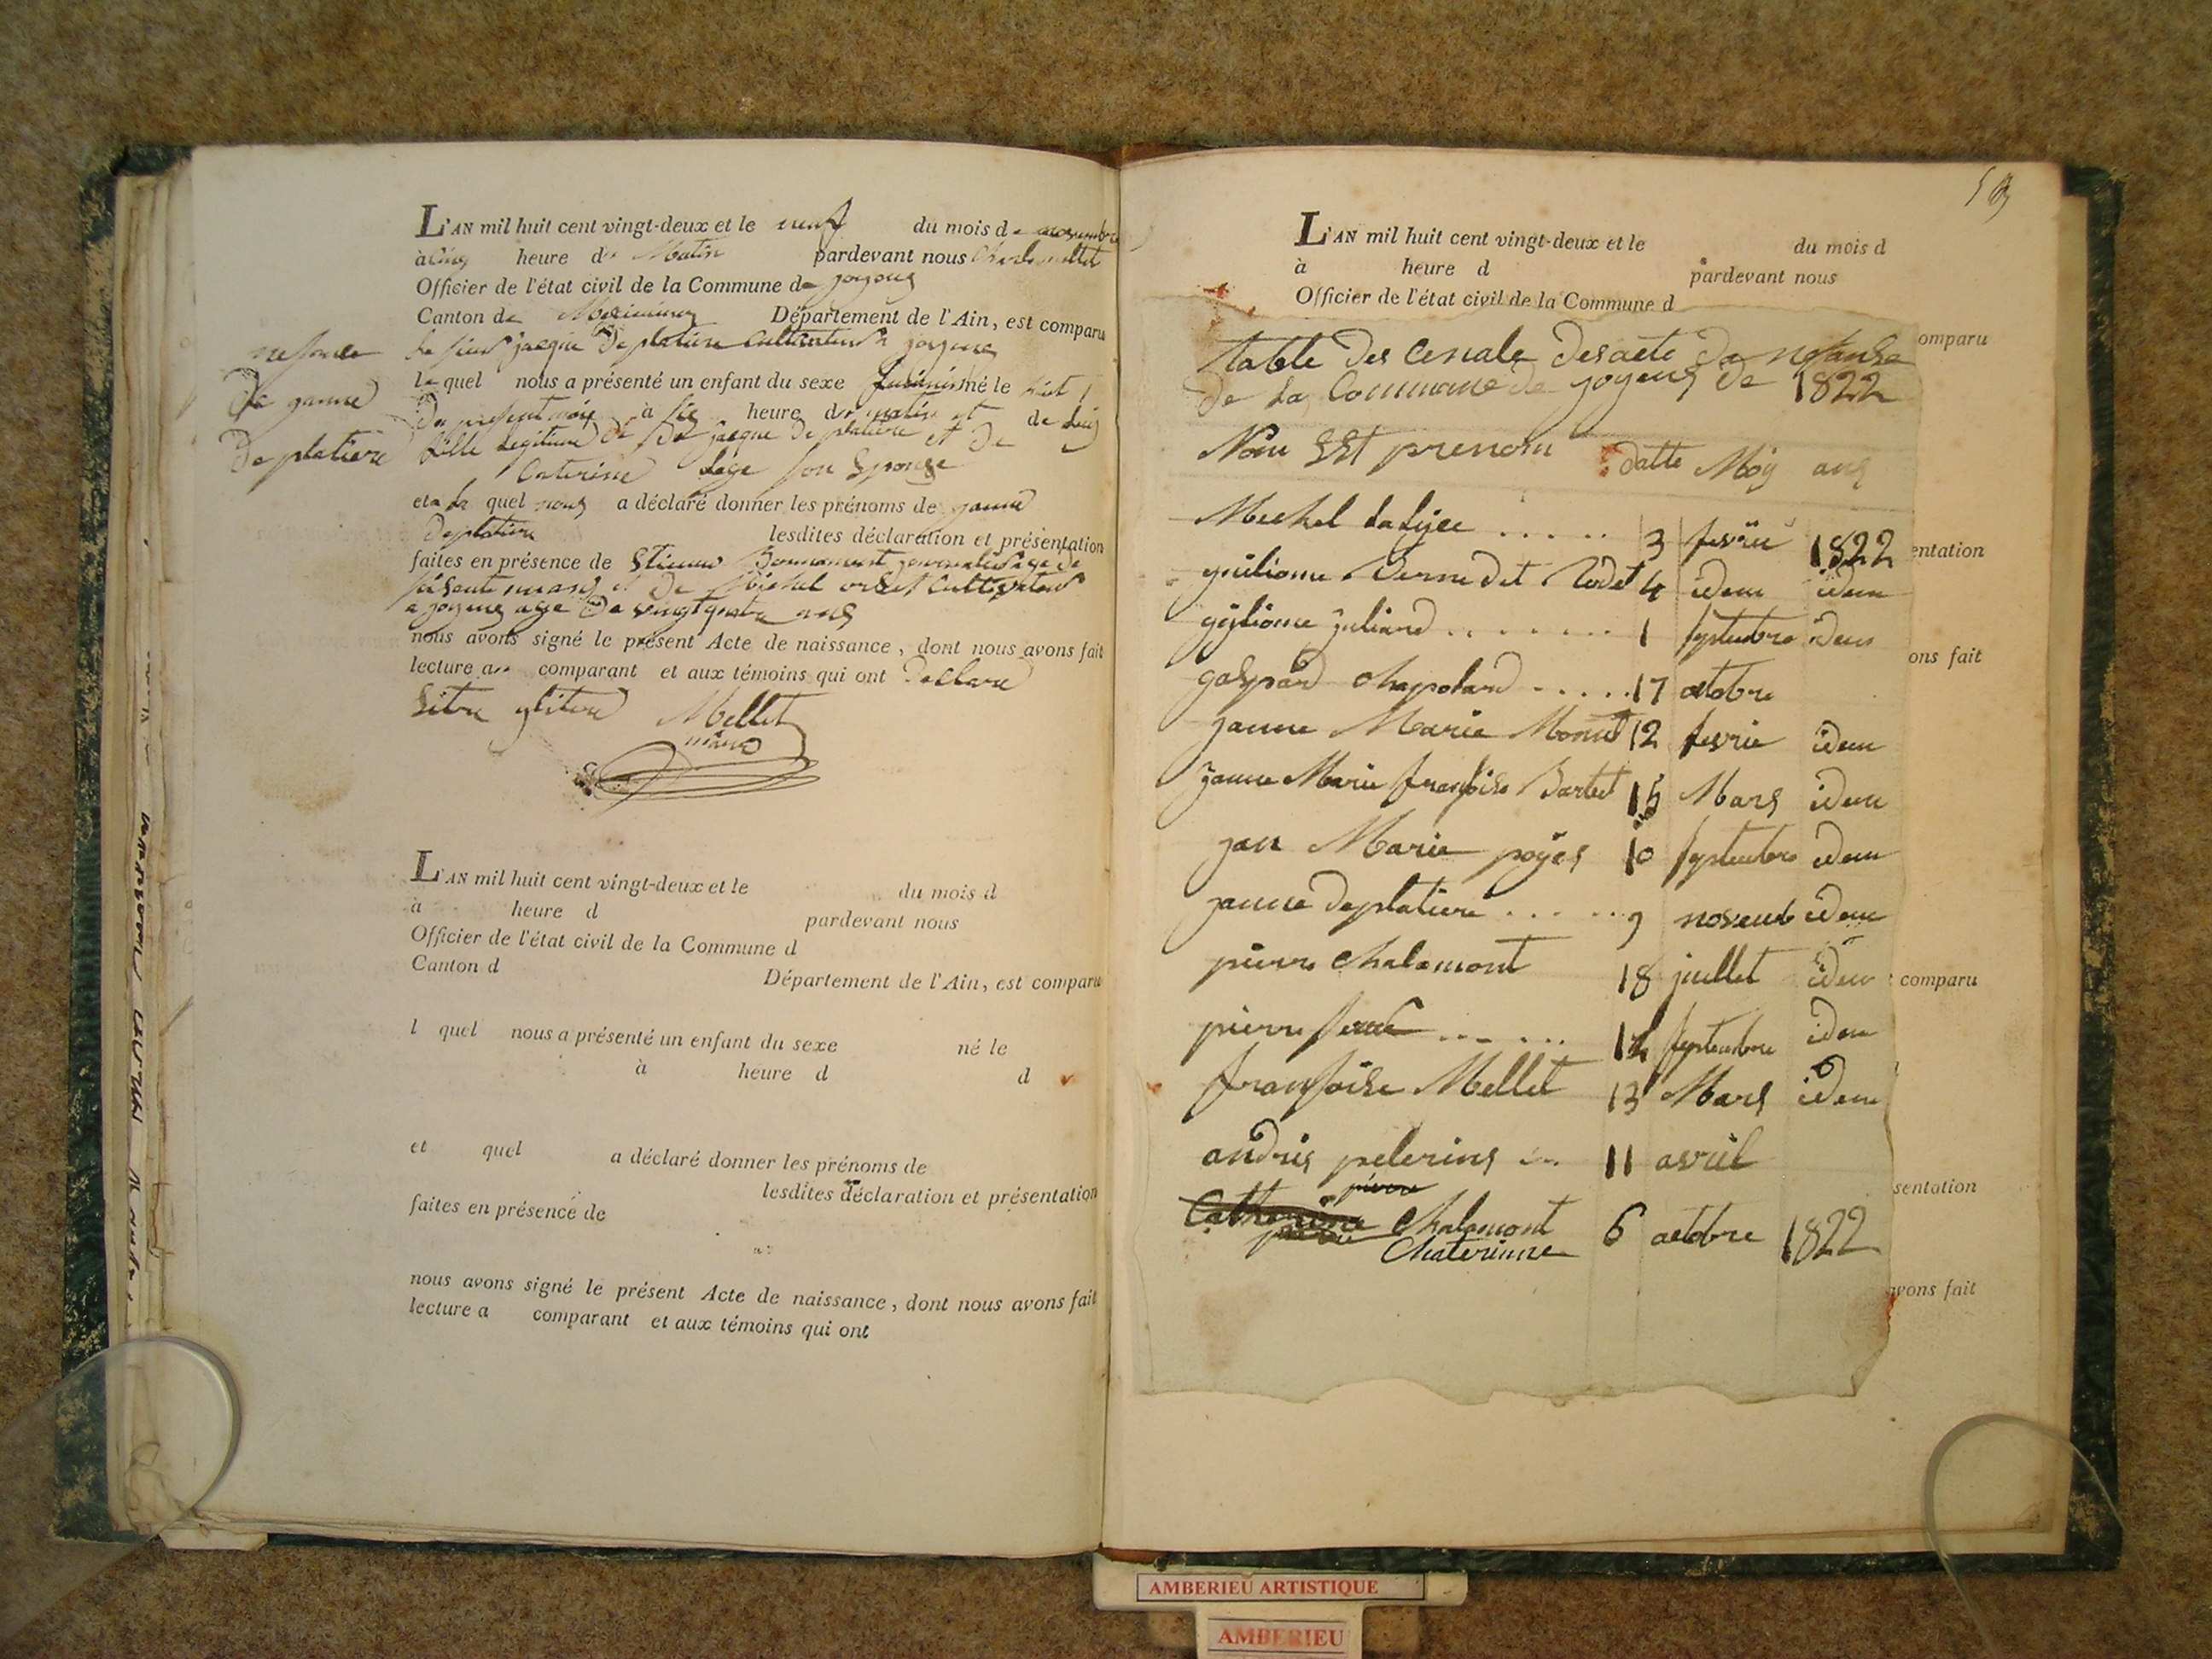 L'AN mil huit cent vingt-deux et le neuf du mois de novembre
à cinq heure du Matin pardevant nous Charle mellet
Officier de l'état civil de la Commune de joyeux
Canton de Meximieux Département de l'Ain, est comparu
le sieur jacque Deplatiere Cultivateur a joyeux
le quel nous a présenté un enfant du sexe feminin né le huit
Du present mois à six heure du matin et de lui
fille Legitime De Dit jacque De platiere et De
Caterine Lege son Epouse
et a le quel nous a déclaré donner les prénoms de janne
Deplatiere lesdites déclaration et présentation
faites en présence de Etienne Bonnamant journalier age de
soisente un ans et De Michel orset Cultivateur
a joyeux age De vingt quatre ans
nous avons signé le présent Acte de naissance, dont nous avons fait
lecture au comparant et aux témoins qui ont Declare
Mellet
maire
nesance
De janne
Deplatiere
L'AN mil huit cent vingt-deux et le du mois d
à heure d pardevant nous
Officier de l'état civil de la Commune d
Canton d Département de l'Ain, est comparu
l quel nous a présenté un enfant du sexe né le
à heure d d
et quel a déclaré donner les prénoms de
lesdites déclaration et présentation
faites en présence de
nous avons signé le présent Acte de naissance, dont nous avons fait
lecture a comparant et aux témoins qui ont
L'AN mil huit cent vingt-deux et le du mois d
à heure d pardevant nous
Officier de l'état civil de la Commune d
omparu
table Des Cenale Des acte De nesanse
De La Commune de joyeux De 1822
Nom Est prenom datte Moy ans
Mechel lafije 3 fevrie 1822
entation
guiliome Verne dit Rodet 4 idem idem
giyliome juliard 1 septembre idem
ons fait
gaspard Chapolard 17 octobre
janne Marie Monnet 12 fevrie idem
janne Marie franſoise Bartet 15 Mars idem
jan Marie poyes 10 septembre idem
janne Deplatiere 9 novemb idem
pierre Chalamont 18 juillet idem
comparu
pierre 14 septembre idem
franſoise Mellet 13 Mars idem
andris pelerins 11 avril
sentation
pierre
Catherine Chalamont 6 octobre 1822
Chaterinne
avons fait
AMBERIEU ARTISTIQUE
AMBERIEU